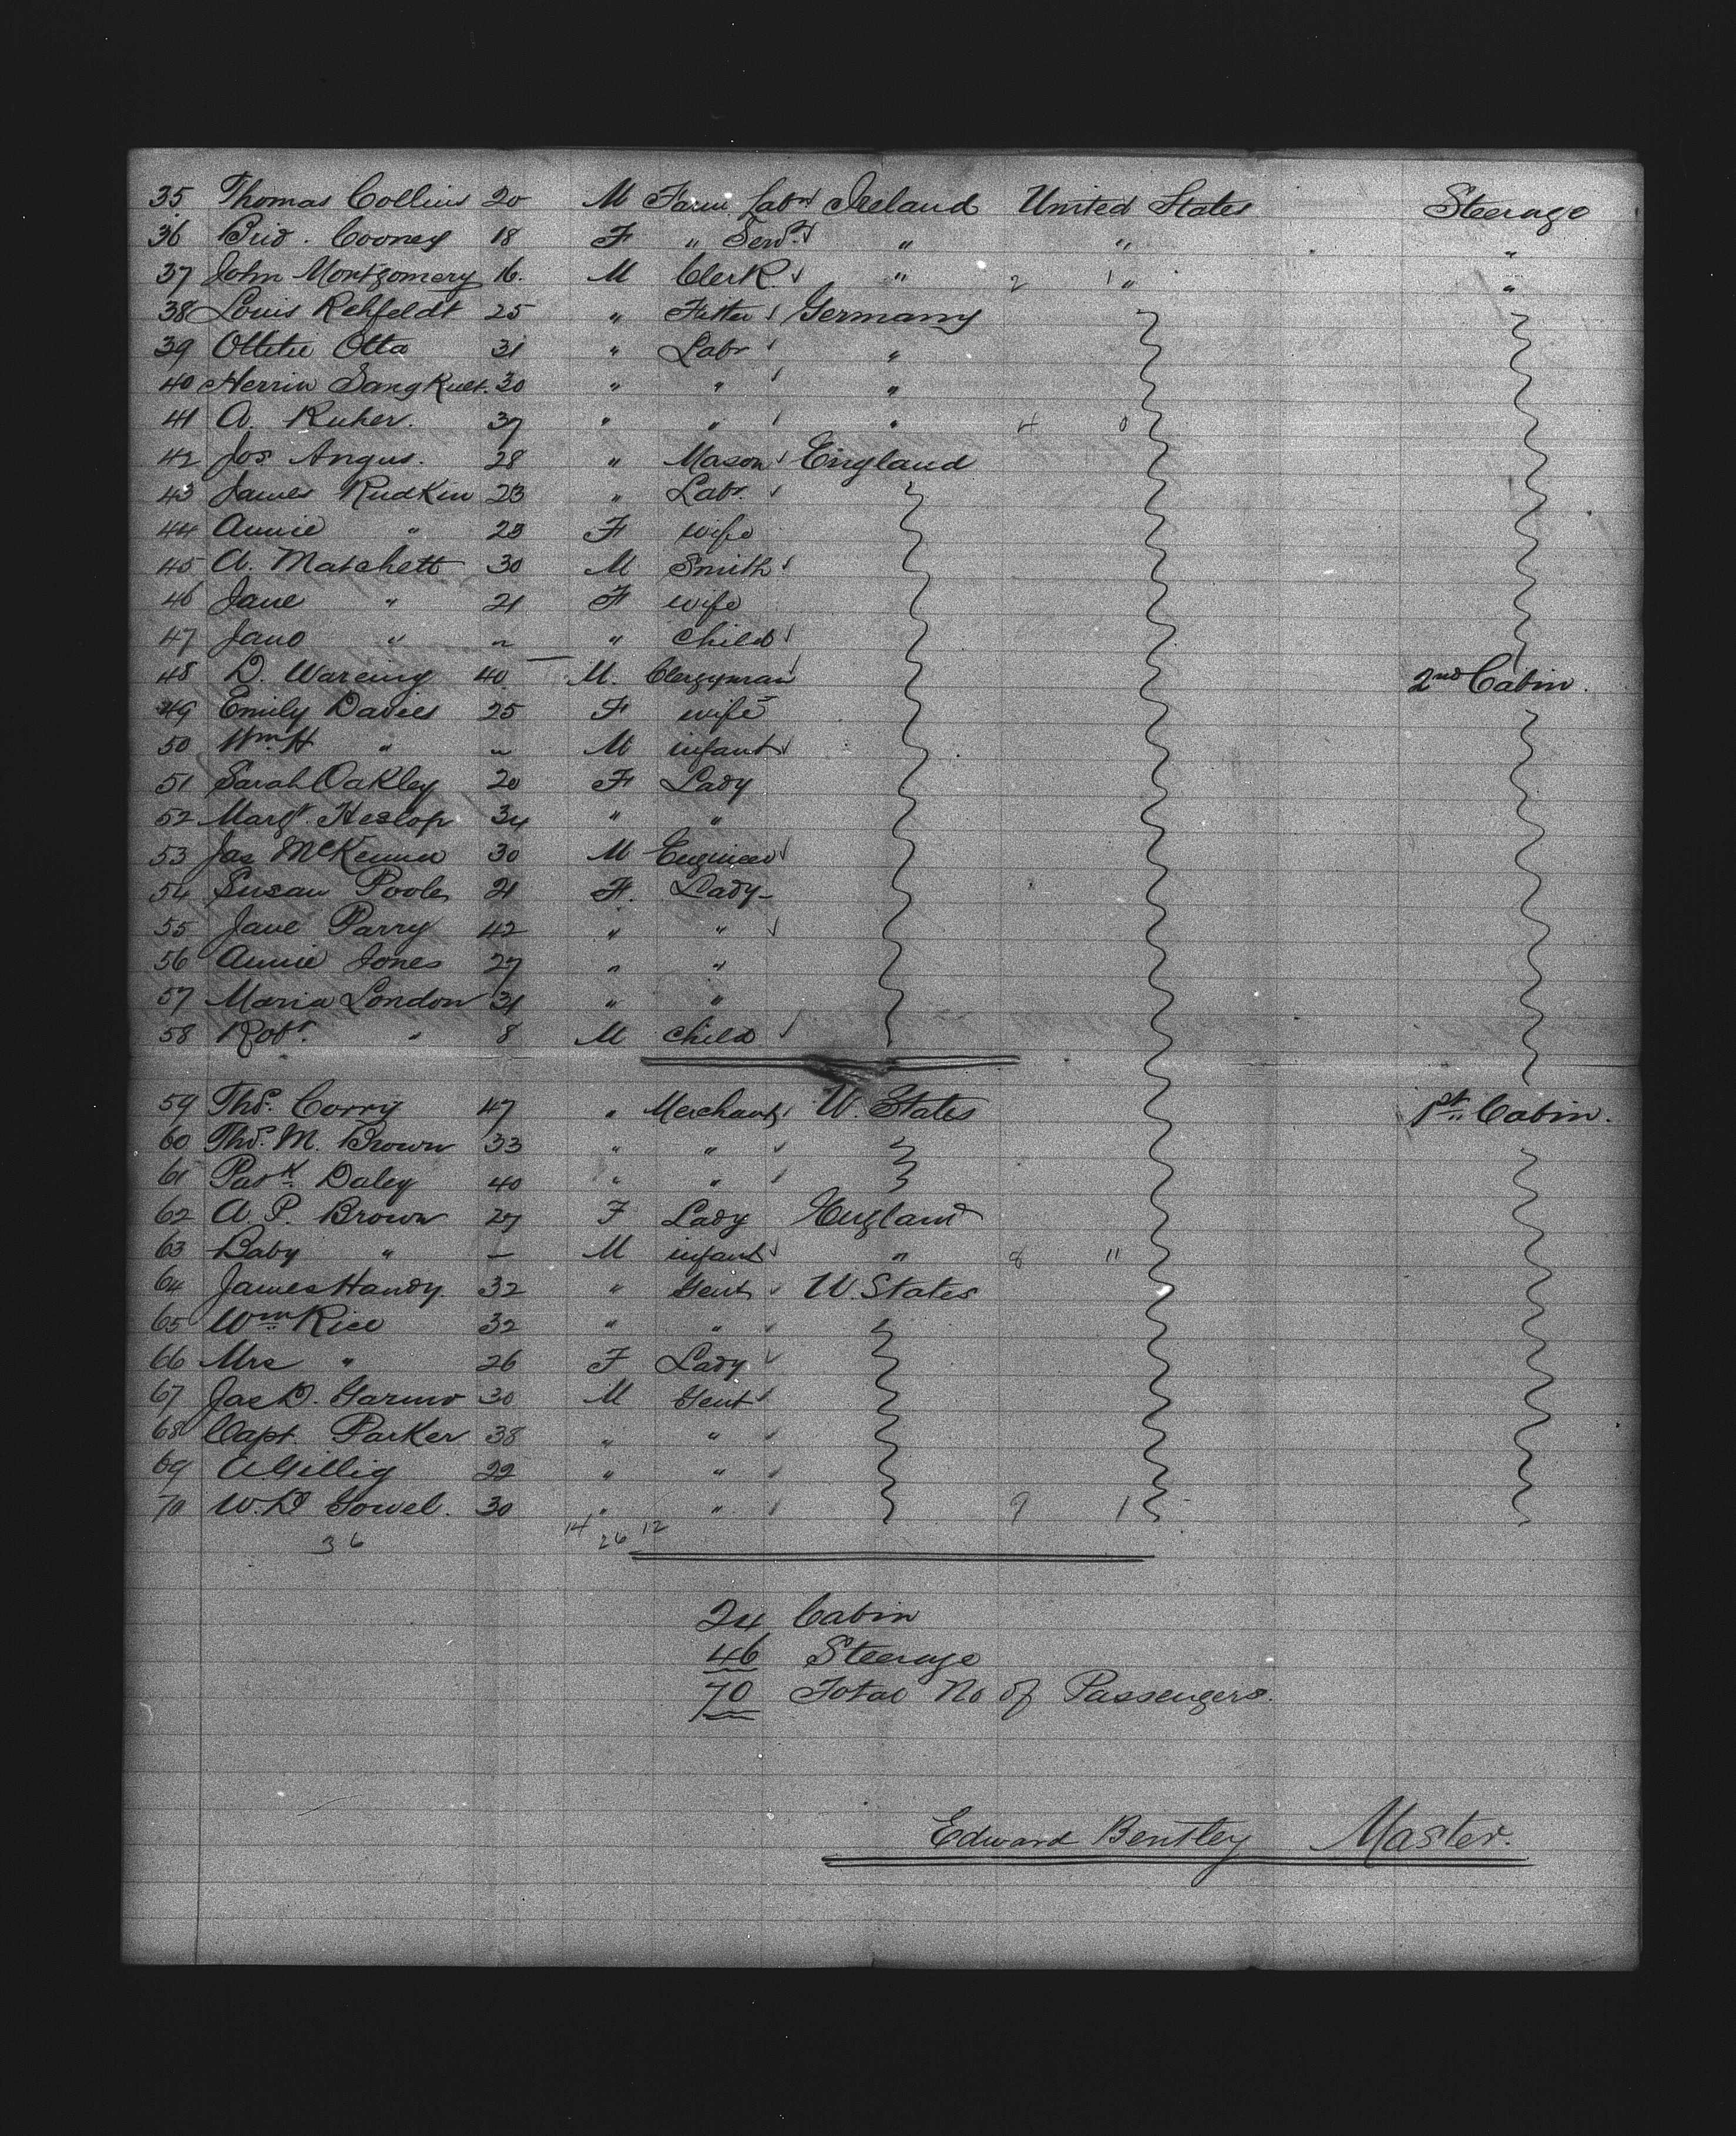 35 Thomas Collins 20 M Farm Labr Ireland United States Steerage
36 Brid. Cooney 18 F " Servt " " "
37 John Montgomery 16. M Clerk " 2 1 " "
38 Louis Rehfeldt 25 " Fitter Germany
39 Ottitie Otta 31 " Labr "
40 Herrin 30 " " "
41 A. Ruher. 37 " " " 4 0
42 Jos Angus. 28 " Mason England
43 James Rudkin 23 " Labr.
44 Annie " 23 F wife
45 A. Matchett 30 M Smith
46 Jane " 21 F wife
47 Jane " " " child
48 D. Wareing 40 M. Clergyman 2nd Cabin.
49 Emily Davies 25 F wife
50 Wm H " " M infant
51 Sarah Oakley 20 F Lady
52 Margt. Heslop 34 " "
53 Jas McKenna 30 M Engineer
54 Susan Poole 21 F. Lady
55 Jane Parry 42 " "
56 Annie Jones 27 " "
57 Maria London 31 " "
58 Robt. " 8 M child
59 Thos. Corry 47 " Merchant U. States 1st Cabin.
60 Thos. M. Brown 33 " "
61 Patk. Daley 40 " "
62 A. P. Brown 27 F Lady England
63 Baby " — M infant " 8 11
64 James Handy 32 " Gent U. States
65 Wm Rice 32 " "
66 Mrs " 26 F Lady
67 Jas D. 30 M Gent
68 Capt. Parker 38 " "
69 A Gillig 22 " "
70 W. D Gowel. 30 " " 9 1
36 14 26 12
24 Cabin
46 Steerage
70 Total No of Passengers.
Edward Bentley Master.